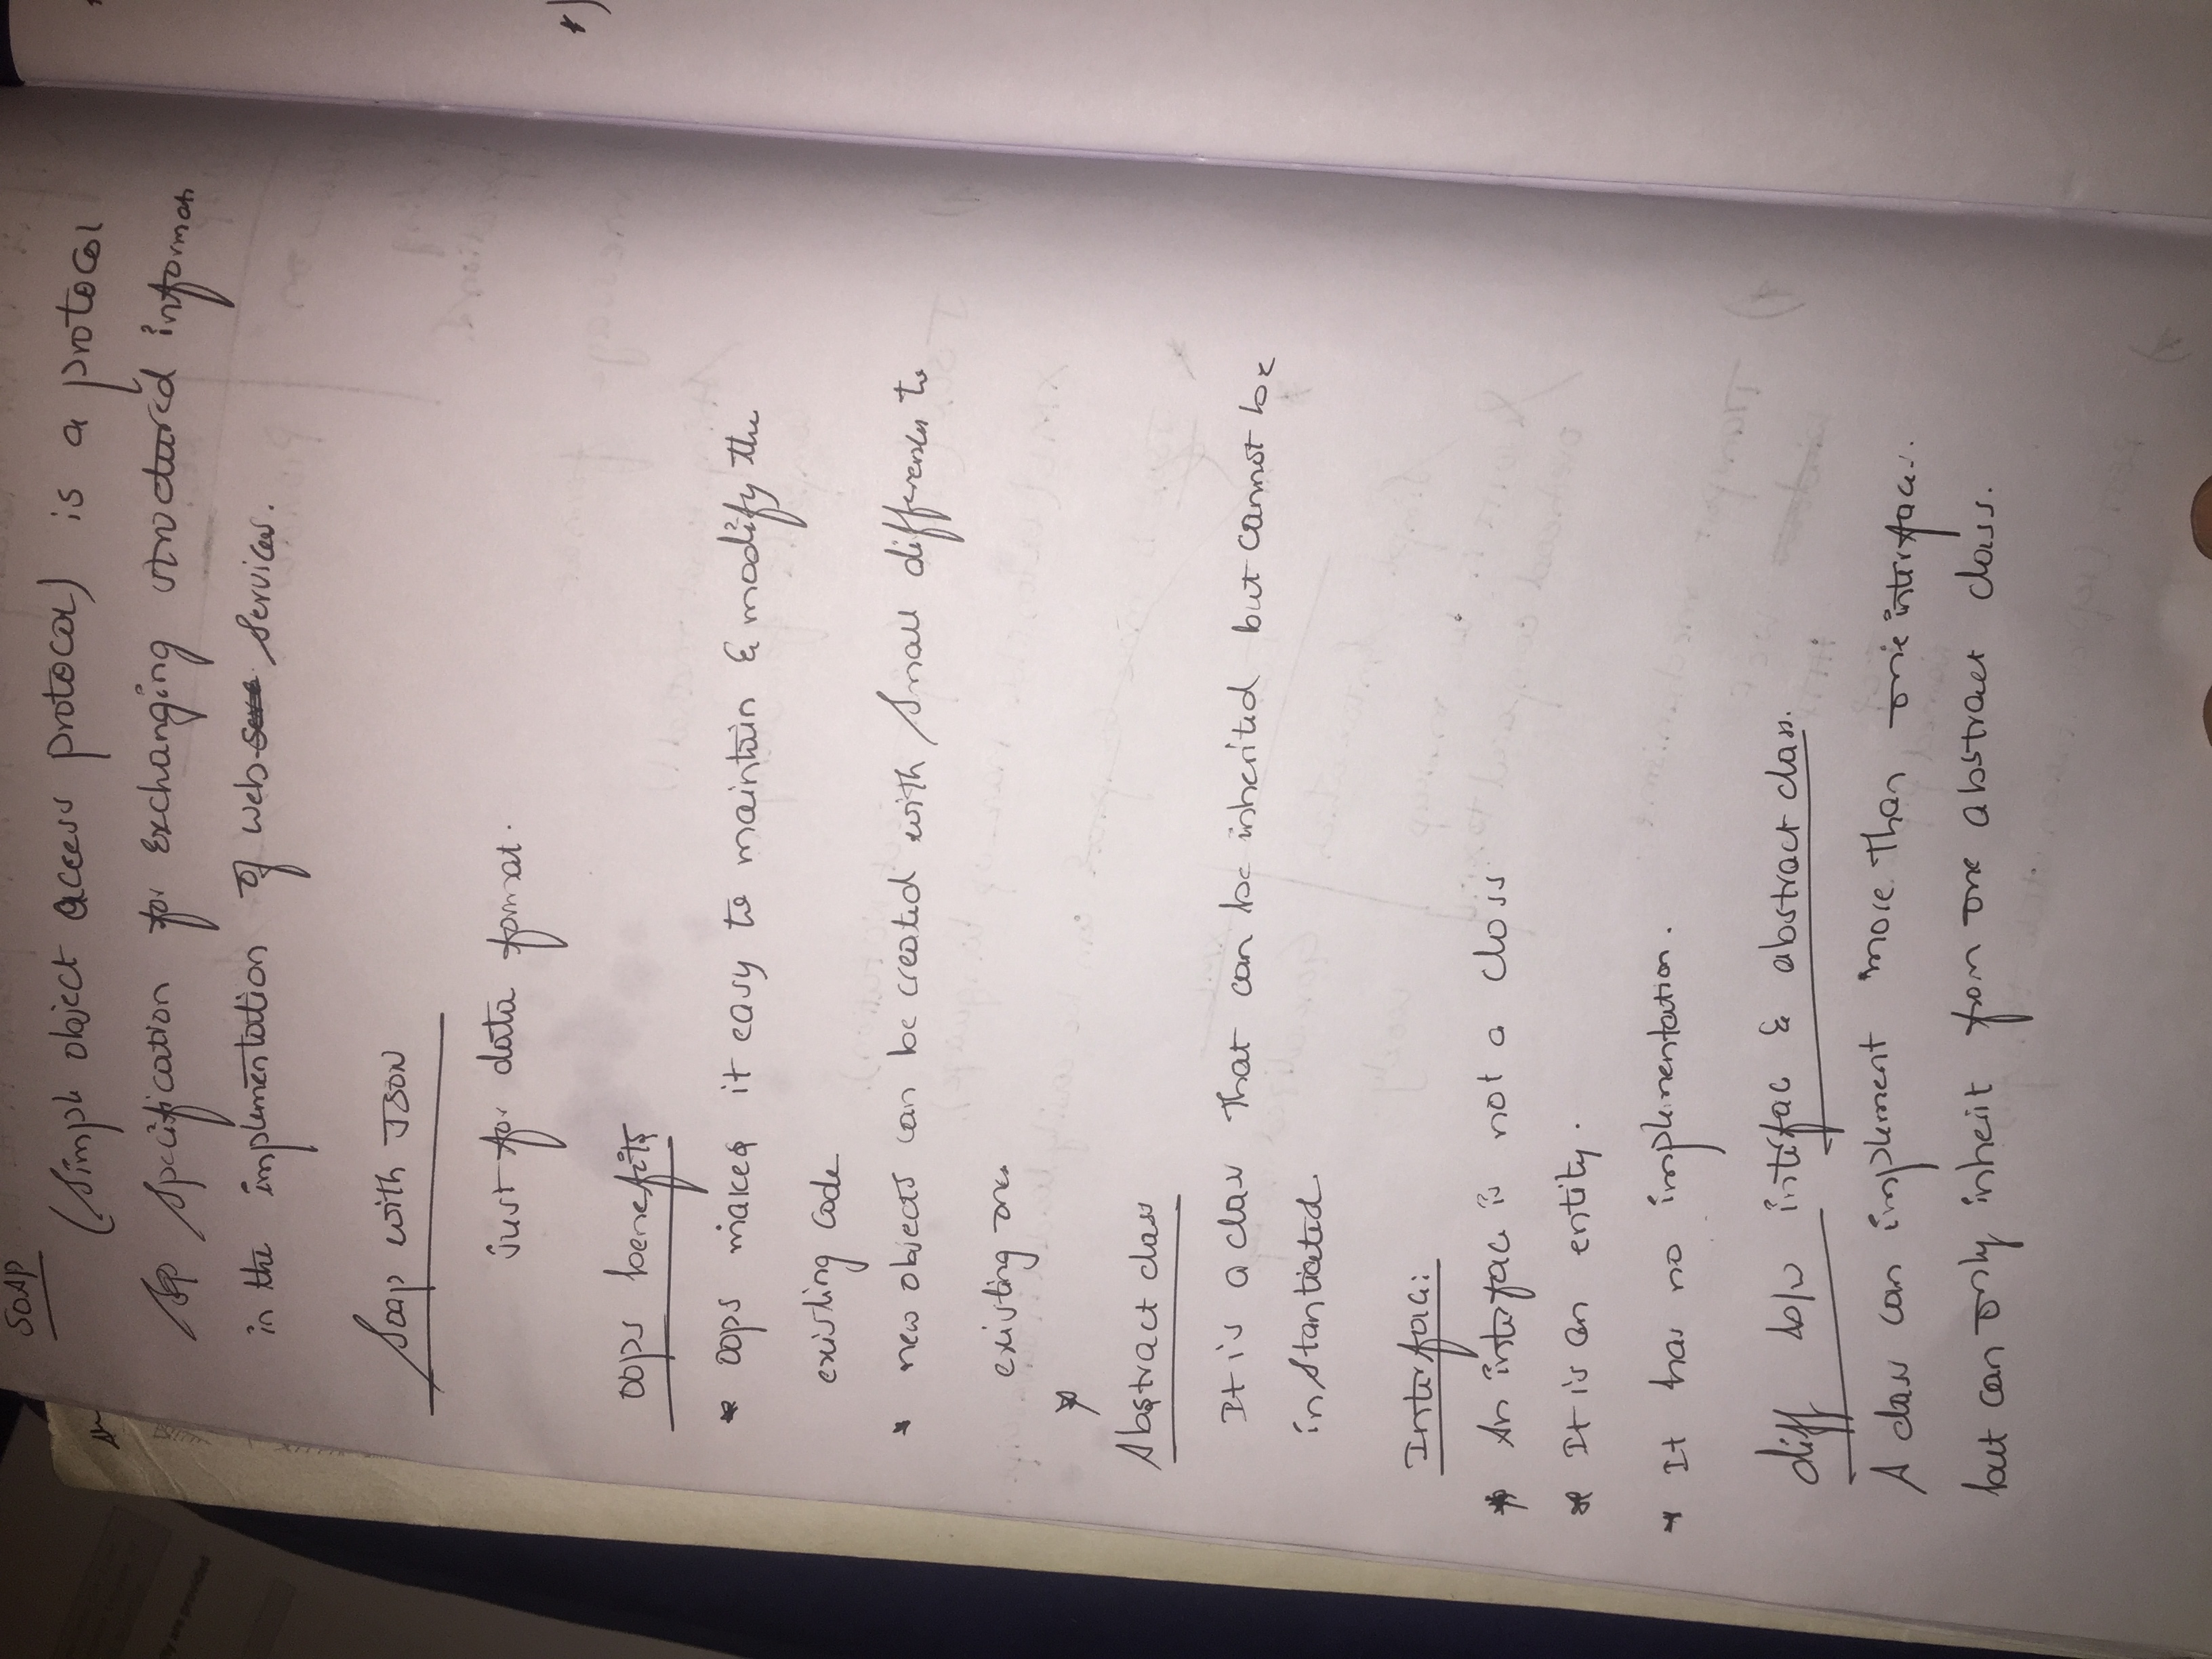 SOAP
(Simple object access protocol) is a protocol
Specification for Exchanging structured informati
in the implementation of web Services.
Soap with JSON
just for data format.
OOps benefits
* OOps makes it easy to maintain & modify the
existing code
* new objects can be created with Small differences to
existing ones
*
Abstract class
It is a class that can be inherited but cannot be
instantiated.
Interface:
* An interface is not a class
* It is an entity.
* It has no implementation.
diff b/w interface & abstract class.
A class can implement more than one interfaces.
but can only inherit from one abstract class.